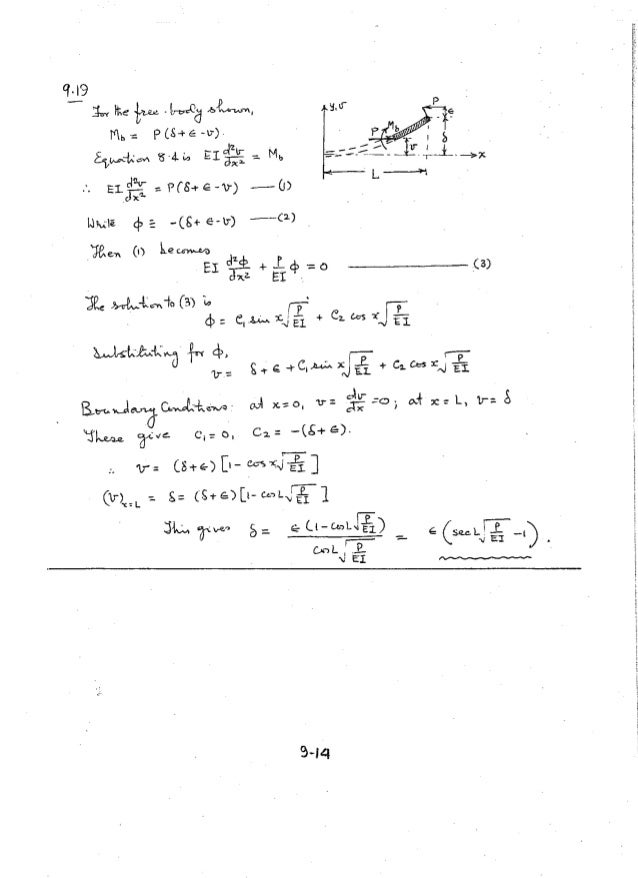 9.19
For the free-body shown,
M_b = P(δ+ϵ-v).
Equation 8.4 is EI d²v/dx² = M_b
∴ EI d²v/dx² = P(δ+ϵ-v) —(1)
Write ϕ ≡ -(δ+ϵ-v) —(2)
Then (1) becomes
EI d²ϕ/dx² + P/EI ϕ = 0 — (3)
The solution to (3) is
ϕ = C₁ sin x√(P/EI) + C₂ cos x√(P/EI)
Substituting for ϕ,
v = δ+ϵ+C₁ sin x√(P/EI) + C₂ cos x√(P/EI)
Boundary Conditions: at x=0, v = dv/dx =0; at x=L, v=δ
These give C₁=0, C₂ = -(δ+ϵ).
∴ v = (δ+ϵ)[1-cos x√(P/EI)]
(v)x=L = δ = (δ+ϵ)[1-cos L√(P/EI)]
This gives δ = ϵ(1-cos L√(P/EI))/cos L√(P/EI) = ϵ(sec L√(P/EI) -1).
y,v
P
ϵ
P
M_b
v
δ
x
L
9-14